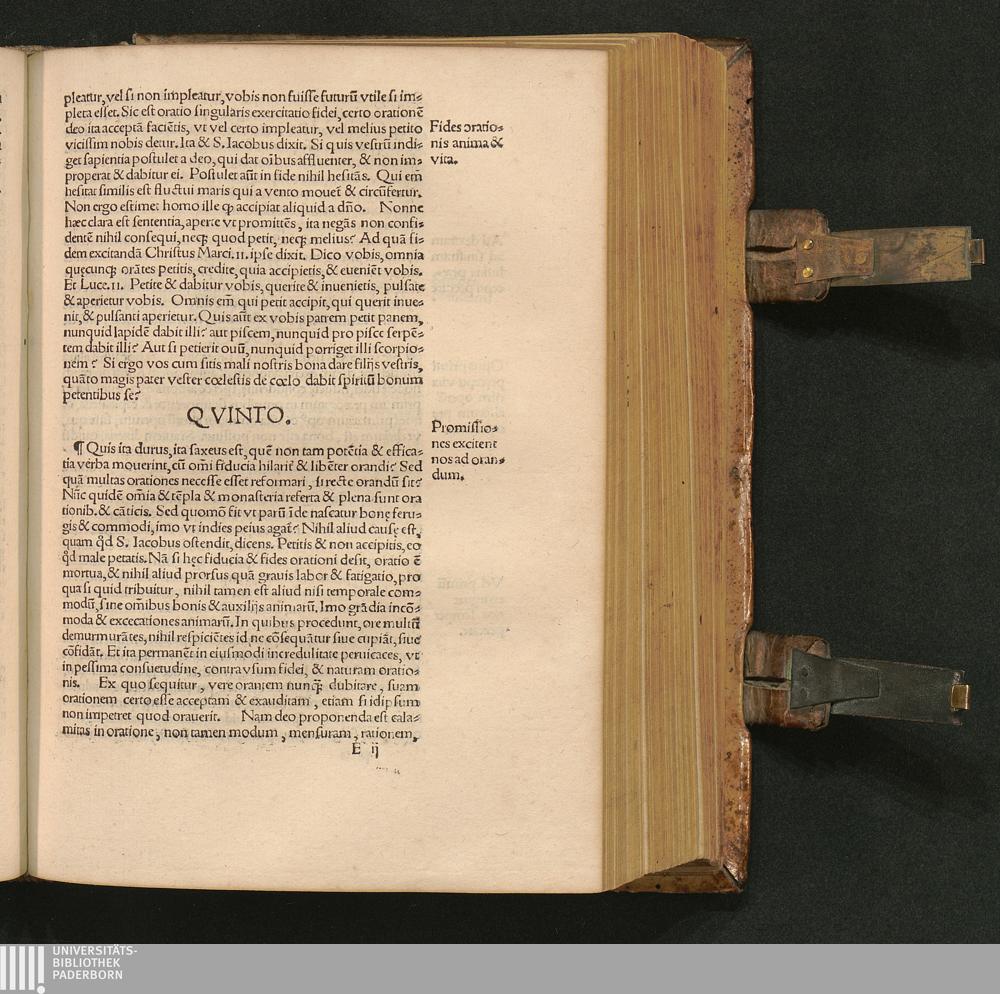 pleatur, vel si non impleatur, vobis non fuisse futurū vtile si im⸗
pleta esset. Sic est oratio singularis exercitatio fidei, certo orationē
deo ita acceptā faciētis, vt vel certo impleatur, vel melius petito
vicissim nobis detur. Ita & S. Iacobus dixit. Si quis vestrū indi⸗
get sapientia postulet a deo, qui dat oībus affluenter, & non im⸗
properat & dabitur ei. Postulet aūt in fide nihil hesitās. Qui em̄
hesitat similis est fluctui maris qui a vento mouet̄ & circūfertur.
Non ergo estimet homo ille ꝙ accipiat aliquid a dño. Nonne
hæc clara est sententia, aperte vt promittēs, ita negās non confi⸗
dentē nihil consequi, neqꝫ quod petit, neqꝫ melius? Ad quā fi⸗
dem excitandā Christus Marci. 11. ipse dixit. Dico vobis, omnia
quęcunqꝫ orātes petitis, credite, quia accipietis, & eueniēt vobis.
Et Luce. 11. Petite & dabitur vobis, querite & inuenietis, pulsate
& aperietur vobis. Omnis em̄ qui petit accipit, qui querit inue⸗
nit, & pulsanti aperietur. Quis aūt ex vobis patrem petit panem,
nunquid lapidē dabit illi? aut piscem, nunquid pro pisce serpē⸗
tem dabit illi? Aut si petierit ouū, nunquid porriget illi scorpio⸗
nem? Si ergo vos cum sitis mali nostris bona dare filijs vestris,
quāto magis pater vester cœlestis de cœlo dabit spiritū bonum
petentibus se?
Fides oratio⸗
nis anima &
vita.
QVINTO.
¶ Quis ita durus, ita saxeus est, quē non tam potētia & effica⸗
tia verba mouerint, cū omi fiducia hilarit̄ & libēter orandi? Sed
quā multas orationes necesse esset reformari, si recte orandū sit?
Nūc quidē omīa & tēpla & monasteria referta & plena sunt ora
tionib. & cāticis. Sed quomō fit vt parū īde nascatur bonę feru⸗
gis & commodi, imo vt indies peius agat̄? Nihil aliud causę est,
quam qd̄ S. Iacobus ostendit, dicens. Petitis & non accipitis, eo
qd̄ male petatis. Nā si hęc fiducia & fides orationi desit, oratio ē
mortua, & nihil aliud prorsus quā grauis labor & fatigatio, pro
qua si quid tribuitur, nihil tamen est aliud nisi temporale com⸗
modū, sine omībus bonis & auxilijs animarū. Imo grādia incō⸗
moda & excecationes animarū. In quibus procedunt, ore multū
demurmurātes, nihil respiciētes id ne cōsequātur siue cupiāt, siue
cōfidāt. Et ita permanēt in eiusmodi incredulitate peruicaces, vt
in pessima consuetudine, contra vsum fidei, & naturam oratio⸗
nis. Ex quo sequitur, vere orantem nunqꝫ dubitare, suam
orationem certo esse acceptam & exauditam, etiam si idipsum
non impetret quod orauerit. Nam deo proponenda est cala⸗
mitas in oratione, non tamen modum, mensuram, rationem,
Promissio⸗
nes excitent
nos ad oran⸗
dum.
E ij
UNIVERSITÄTS-
BIBLIOTHEK
PADERBORN